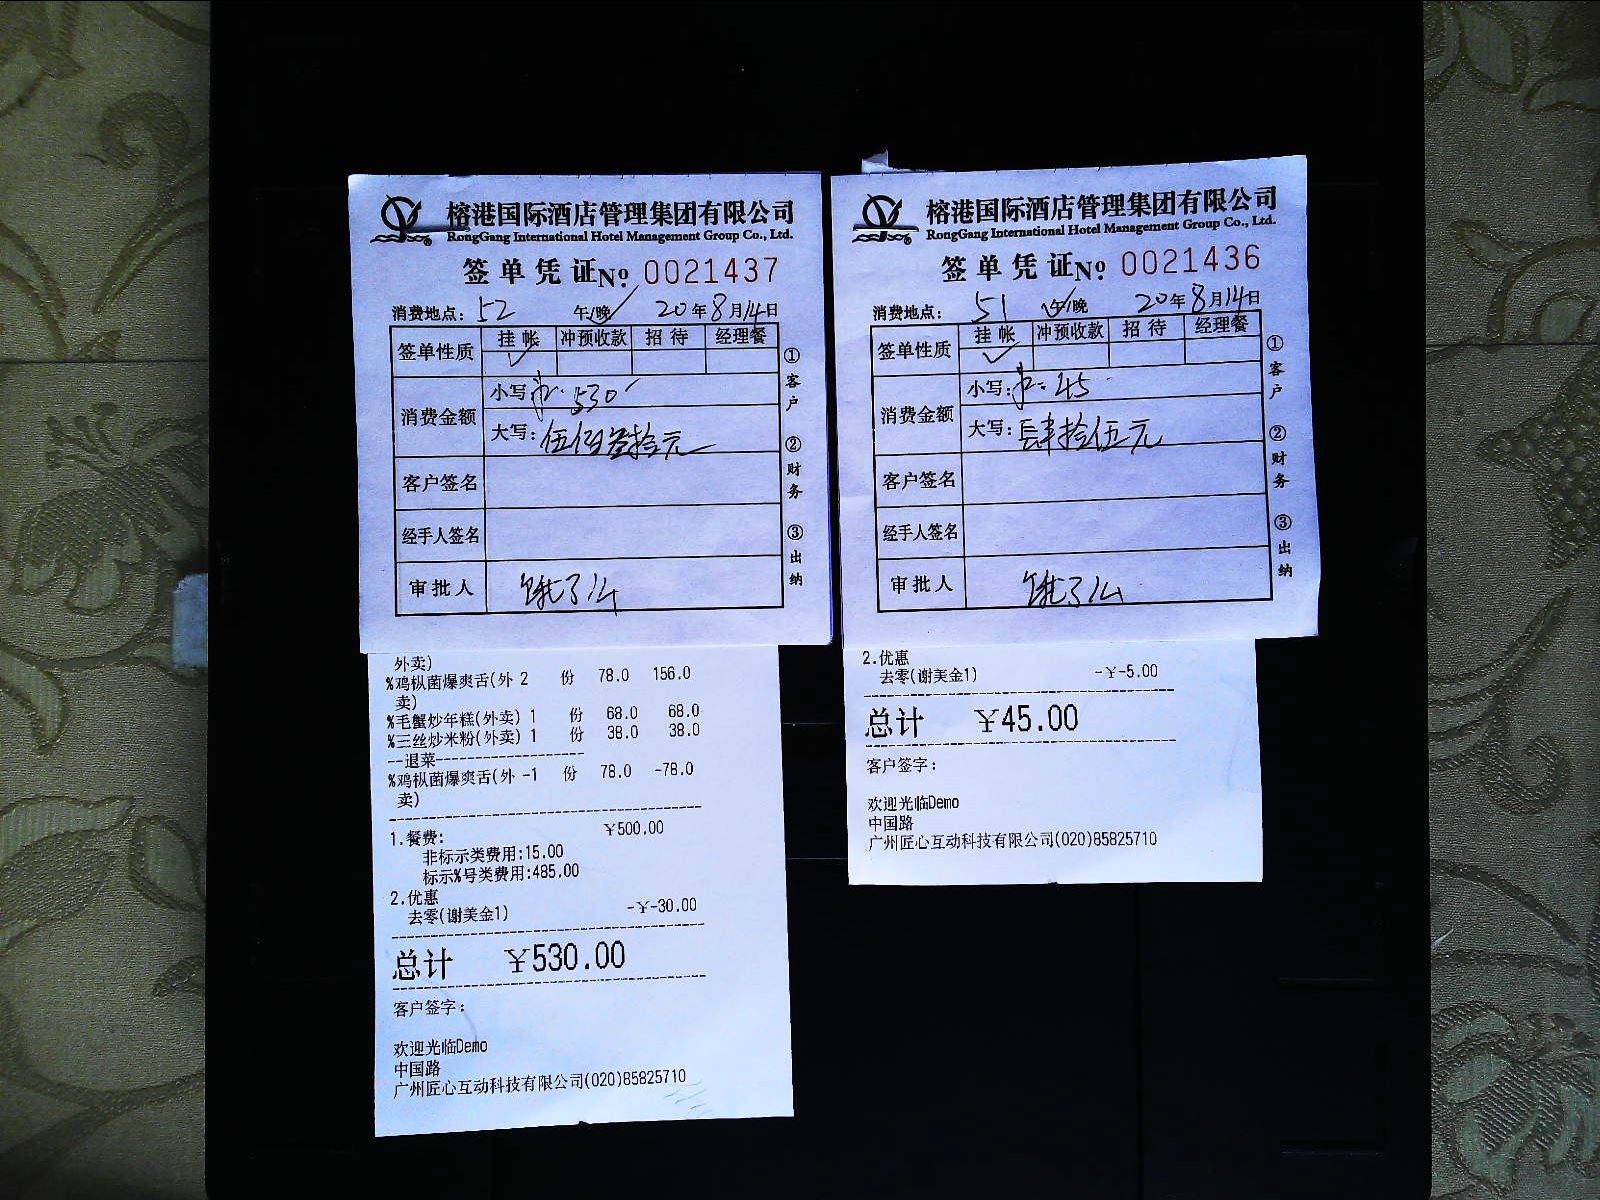 榕港国际酒店管理集团有限公司
RongGang International Hotel Management Group Co., Ltd.
签单凭证 No 0021437
消费地点: 52 午/晚 20年8月14日
签单性质 挂帐 冲预收款 招待 经理餐
消费金额 小写: 530
大写: 伍佰叁拾元
客户签名
经手人签名
审批人 饿了么
①客户 ②财务 ③出纳
外卖)
%鸡枞菌爆爽舌(外 2 份 78.0 156.0
卖)
%毛蟹炒年糕(外卖) 1 份 68.0 68.0
%三丝炒米粉(外卖) 1 份 38.0 38.0
--退菜--
%鸡枞菌爆爽舌(外 -1 份 78.0 -78.0
卖)
1.餐费: ¥500.00
非标示类费用:15.00
标示%号类费用:485.00
2.优惠
去零(谢美金1) -¥-30.00
总计 ¥530.00
客户签字:
欢迎光临Demo
中国路
广州匠心互动科技有限公司(020)85825710
榕港国际酒店管理集团有限公司
RongGang International Hotel Management Group Co., Ltd.
签单凭证 No 0021436
消费地点: 51 午/晚 20年8月14日
签单性质 挂帐 冲预收款 招待 经理餐
消费金额 小写: 45
大写: 肆拾伍元
客户签名
经手人签名
审批人 饿了么
①客户 ②财务 ③出纳
2.优惠
去零(谢美金1) -¥-5.00
总计 ¥45.00
客户签字:
欢迎光临Demo
中国路
广州匠心互动科技有限公司(020)85825710